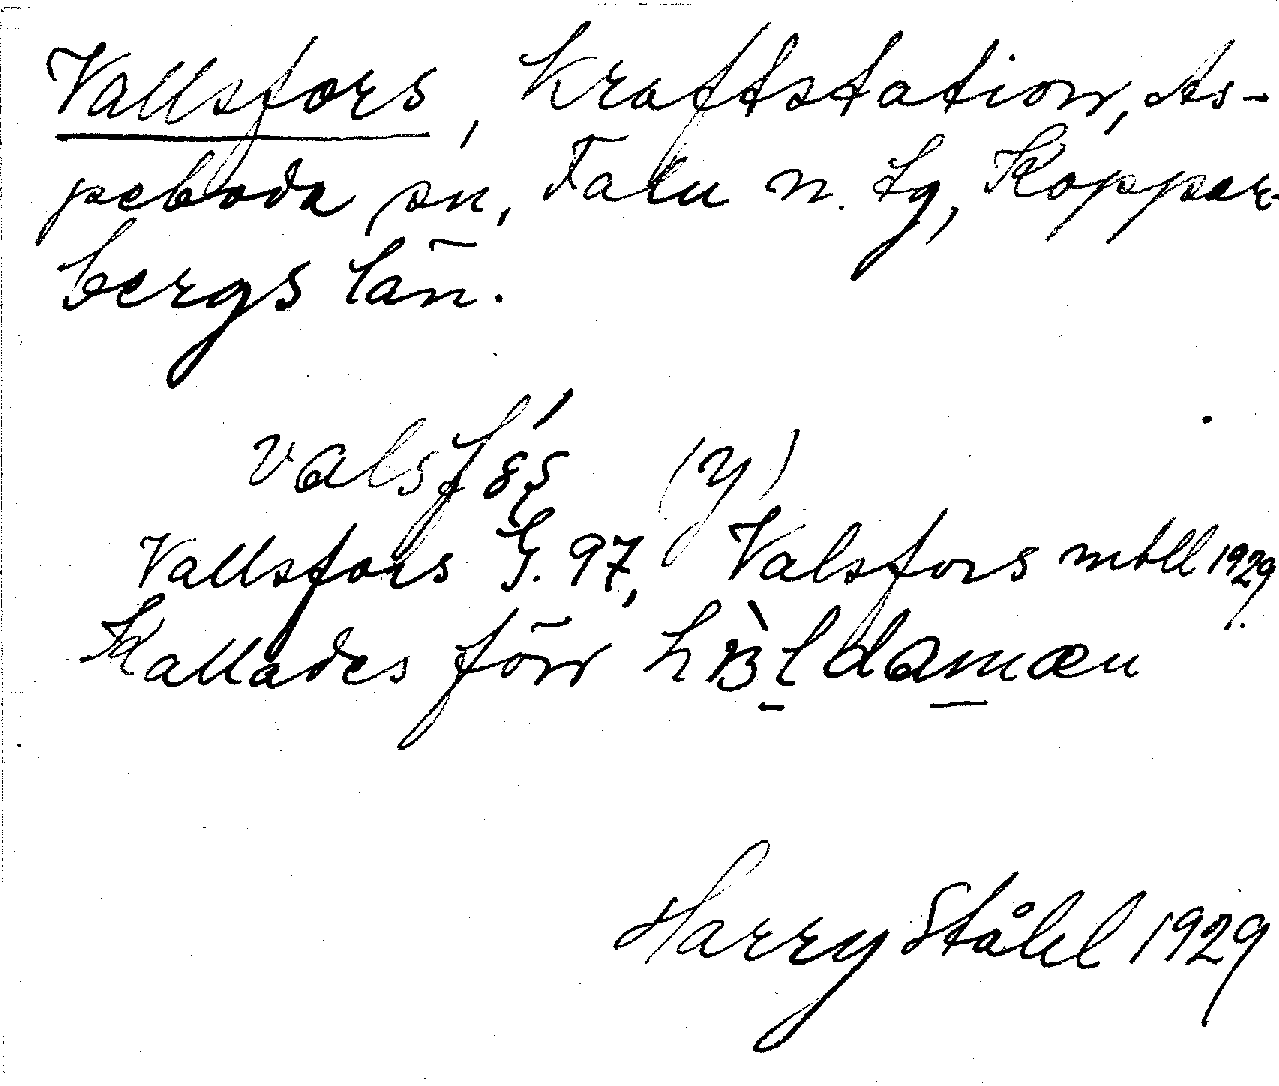 Vallsfors, kraftstation, As-
peboda sn, Falu n. tg, Koppar-
bergs län.
(y)
Vallsfors G. 97, Valsfors mtll 1929.
Kallades förr
Harry Ståhl 1929